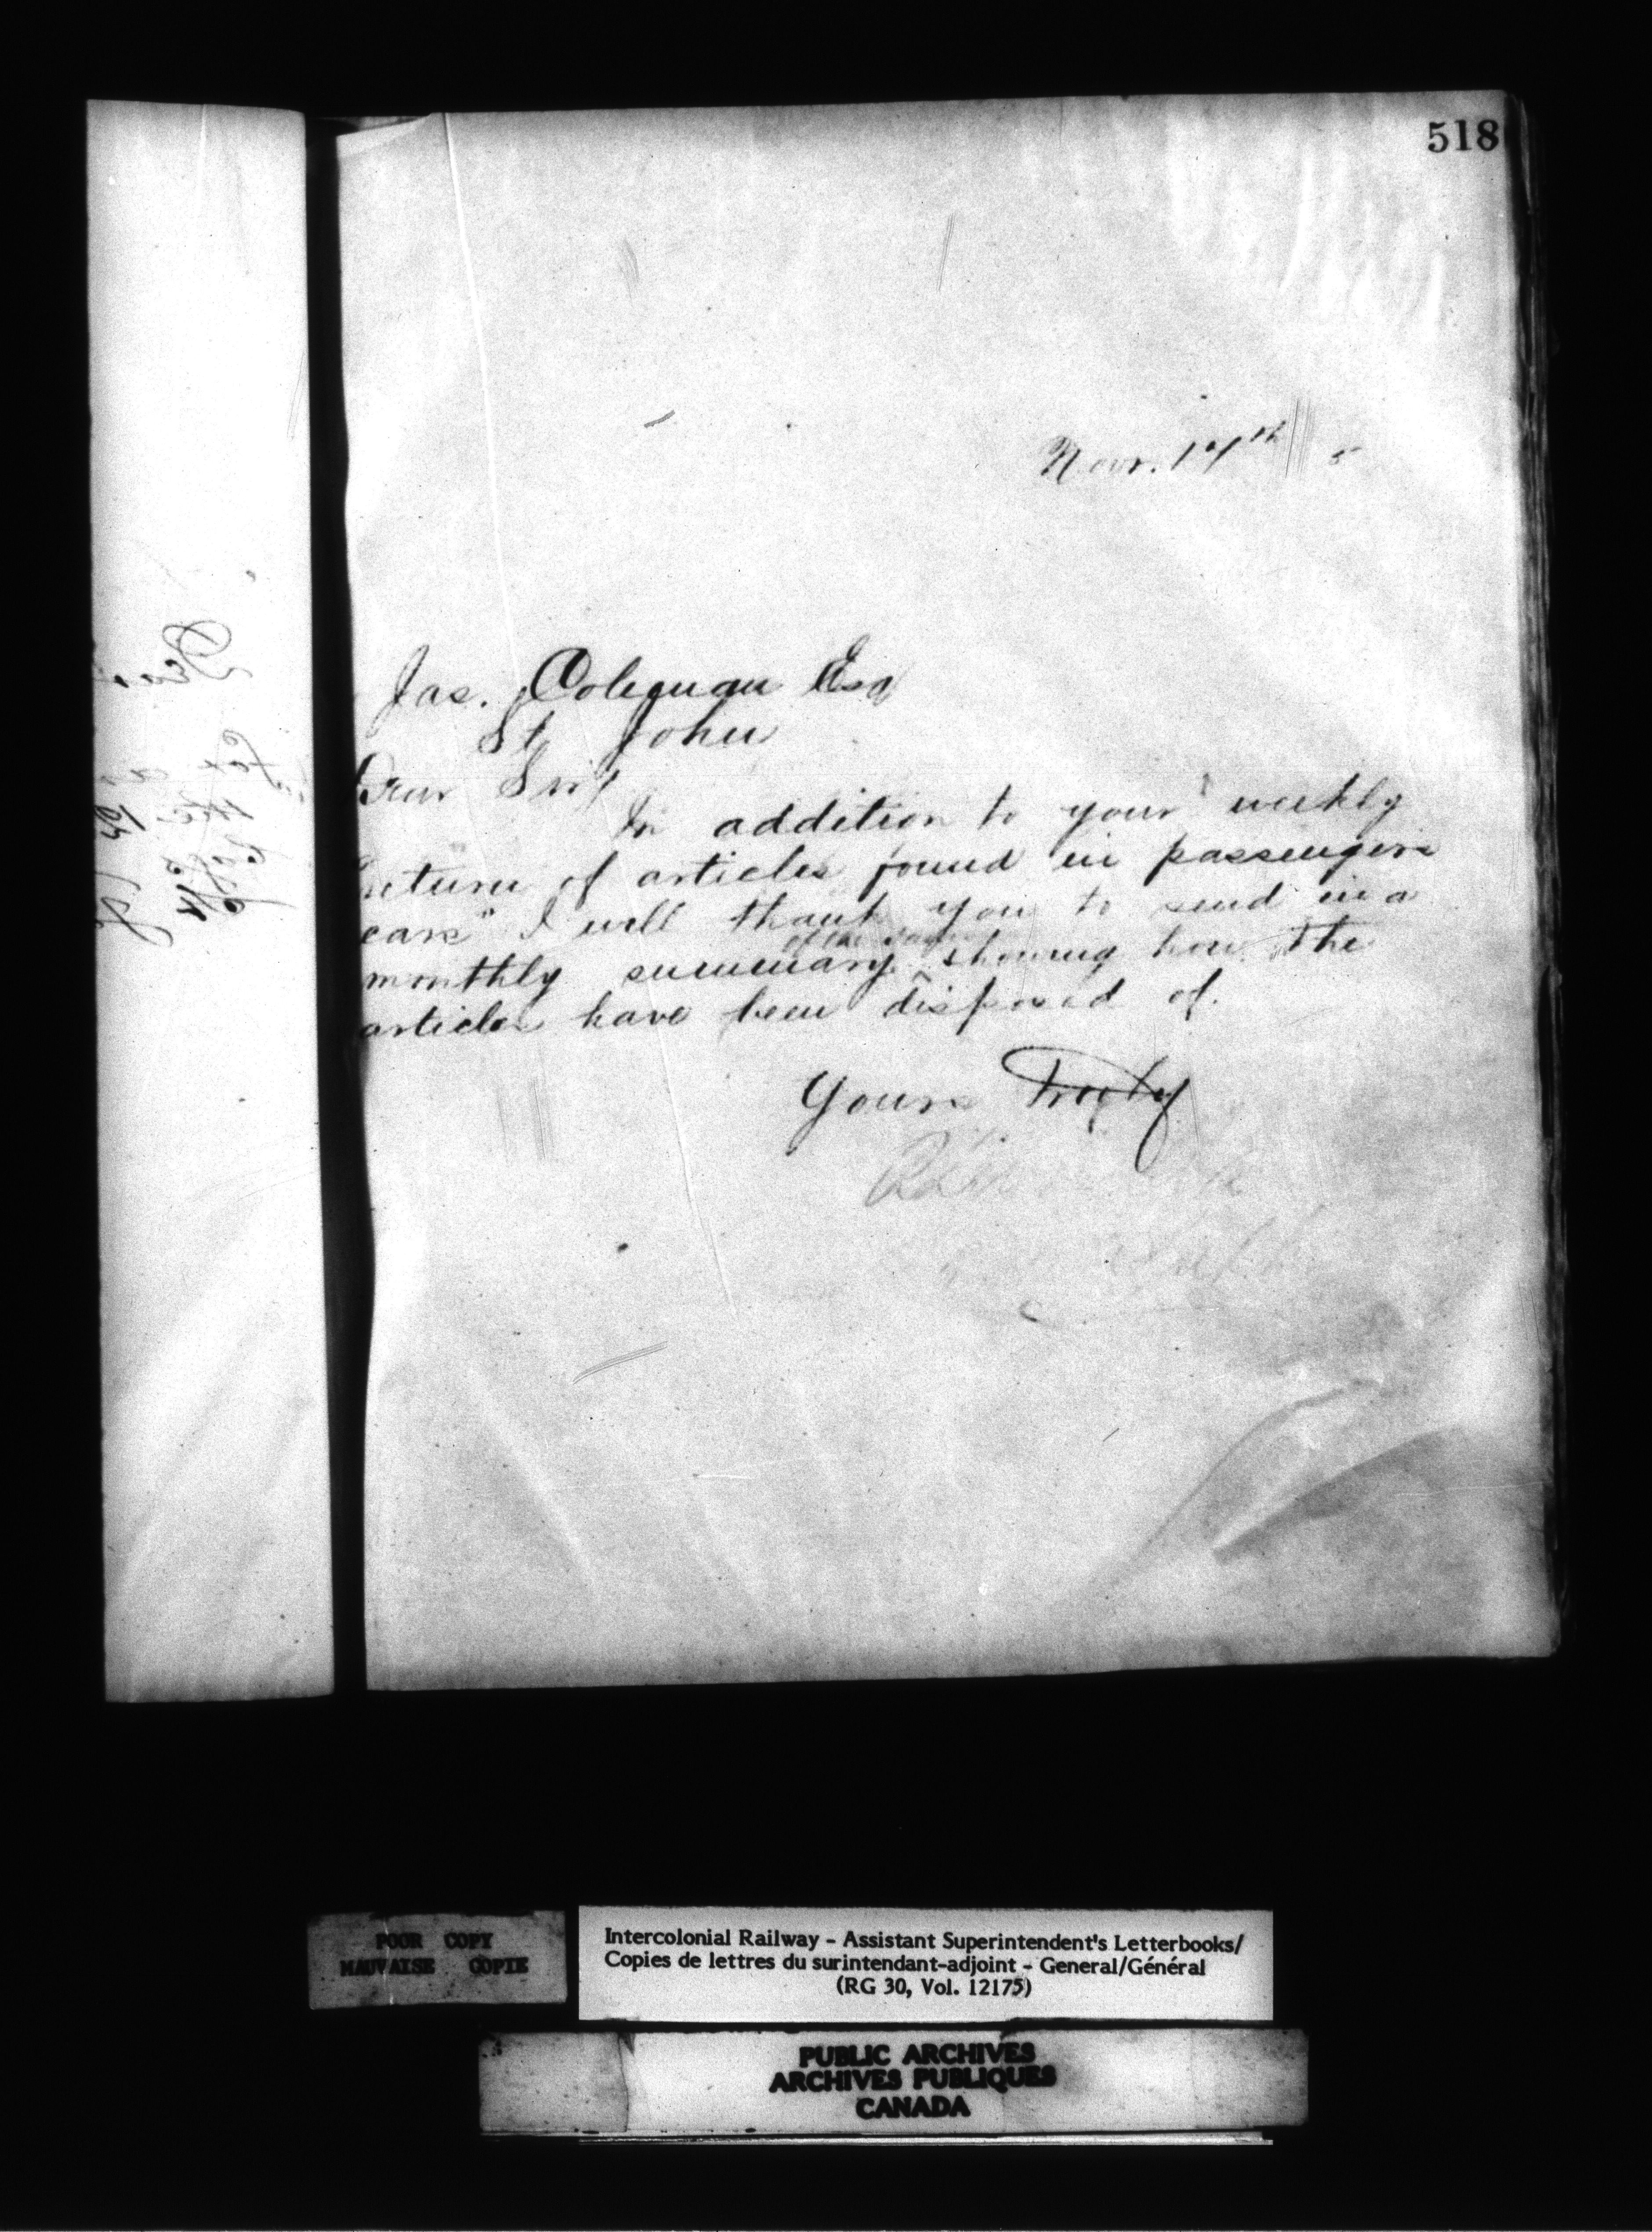 518
Novr. 14th 5
Jas. Coleman Esq
St John
Dear Sir
In addition to your "weekly
return of articles found in passengers
cars" I will thank you to send in a
of the same
monthly summary showing how the
articles have been disposed of.
Yours Truly
POOR COPY
MAUVAISE COPIE
Intercolonial Railway - Assistant Superintendent's Letterbooks/
Copies de lettres du surintendant-adjoint - General/Général
(RG 30, Vol. 12175)
PUBLIC ARCHIVES
ARCHIVES PUBLIQUES
CANADA